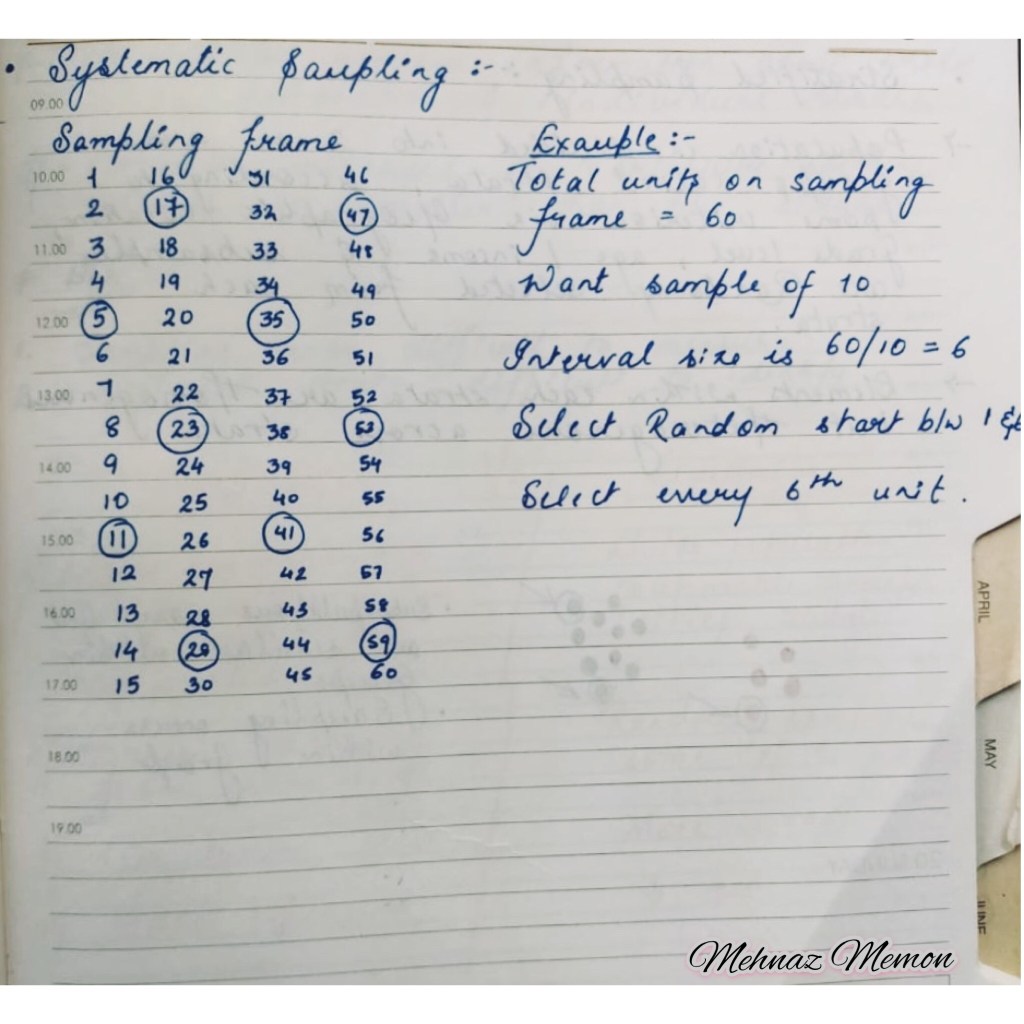 • Systematic Sampling :-
09.00
Sampling frame
Example :-
10.00 1 16 31 46
Total units on sampling
2 17 32 47
frame = 60
11.00 3 18 33 48
4 19 34 49
Want sample of 10
12.00 5 20 35 50
6 21 36 51
Interval size is 60/10 = 6
13.00 7 22 37 52
8 23 38 53
Select Random start b/w 1 & 6
14.00 9 24 39 54
10 25 40 55
Select every 6th unit.
15.00 11 26 41 56
12 27 42 57
16.00 13 28 43 58
14 29 44 59
17.00 15 30 45 60
18.00
19.00
APRIL
MAY
JUNE
Mehnaz Memon